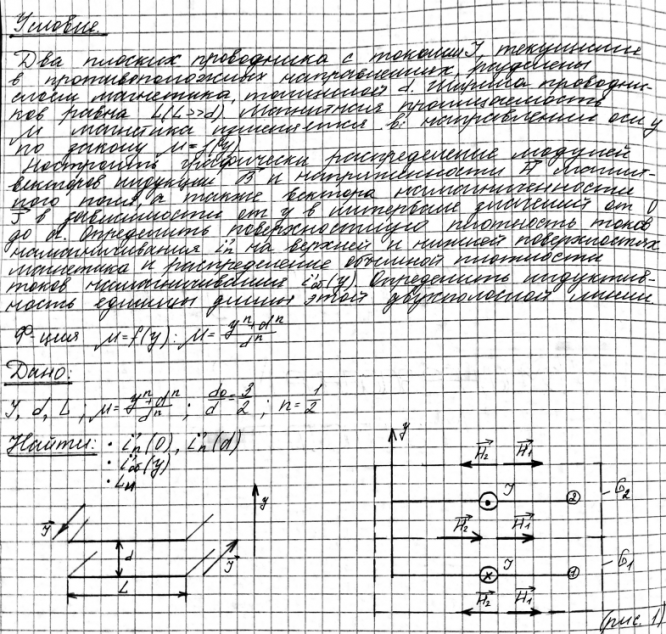 Условие.
Два плоских проводника с токами I, текущими
в противоположных направлениях, разделены
слоем магнетика, толщиной d. Ширина проводни-
ков равна L (L>>d). Магнитная проницаемость
μ магнетика меняется в направлении оси y
по закону μ=f(y)
Построить графически распределение модулей
векторов индукции B и напряженности H магнит-
ного поля, а также вектора намагниченности
J в зависимости от y в интервале значений от 0
до d. Определить поверхностную плотность токов
намагничивания i'п на верхней и нижней поверхностях
магнетика и распределение объемной плотности
токов намагничивания i'об(y). Определить индуктив-
ность единицы длины этой двухполосной линии.
Ф-ция μ=f(y): μ = (y^n + d^n)/d^n
Дано:
I, d, L ; μ = (y^n + d^n)/d^n ; d₀/d = 3/2 ; n = 1/2
Найти: · i'п(0), i'п(d)
· i'об(y)
· Lн
I
d
I
L
y
y
H₂ H₁
I 2 G₂
H₂ H₁
I 1 G₁
H₂ H₁
(рис. 1)